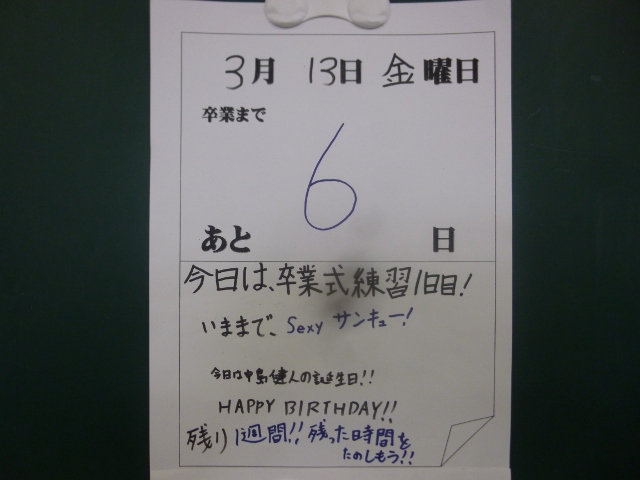 3月 13日 金曜日
卒業まで
6
あと 日
今日は、卒業式練習1日目!
いままで、Sexy サンキュー!
今日は中島健人の誕生日!!
HAPPY BIRTHDAY!!
残り 1週間!! 残った時間を
たのしもう!!